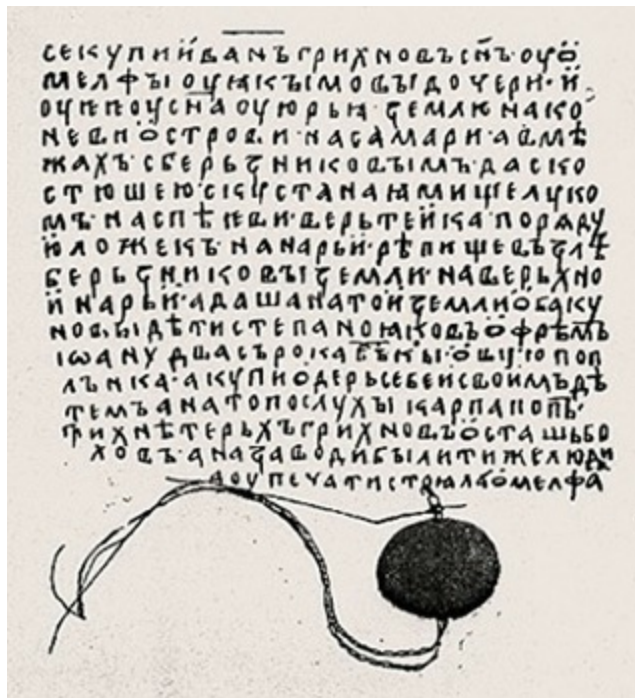 СЕКУПИЙВАНЪГРИХНОВЪСН҃Ъ·ОУѠ̈
МЕЛФЪІОУꙖКЪІМОВЪІДОЧЕРИ·Й
ОУНПОУСНАОУЮРЬꙖ·ЗЕМЛЮНАКО
НЕВИѠ̈СТРОВИ·НАСАМАРИ·АВМѢ
ЖАХЪ·СБЕРЬЗНИКОВЪІМЪ·ДАСКО
СТЮШЕЮСКУСТАНАꙖМИШЕЛУКО
МЪ·НАСПѢНЕВИ·ВЕРЬТЕЙКА·ПОРѦДУ
ЙЛОЖЕКЪ·НАНАРЬЙ·РѢПИЩЕВЪЗЛѢ
БЕРЬЗНИКОВЪІЗЕМЛИ·НАВЕРЬХНО
ЙНАРЬЙ·АДАШАНАТОЙЗЕМЛИѠ̈БАКУ
НОВЪІДѢТИСТЕПАНОꙖКОВЪѠ̈ФРѢМЪ
ІѠАНУДВАСЪРОКАБѢКЪІ·ѠВЦЮПОП
ЛЪНКА·АКУПИѠ̈ДЕРЬСЕБЕИСВОИМЪДѢ
ТЕМЪАНАТОПОСЛУХЪІКАРПАПОПЪ·
ТИХНѢТЕРЬХЪГРИХНОВЪѠ̈СТАШЬБО
ХОВЪ·АНАЗАВОДИБЪІЛИТИЖЕЛЮДИ
АОУПЕЧАТИСТОꙖЛАѠМЕЛФА